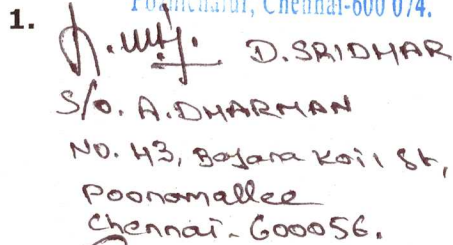 Chennai-600 074.
1. D. SRIDHAR
S/o. A. DHARMAN
NO. 43, Bajana Koil St,
Poonamallee
Chennai - 600056.